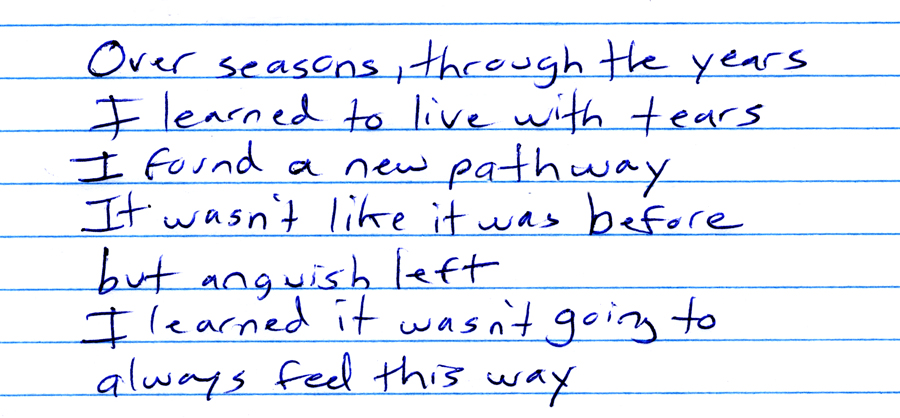 Over seasons, through the years
I learned to live with tears
I found a new pathway
It wasn't like it was before
but anguish left
I learned it wasn't going to
always feel this way